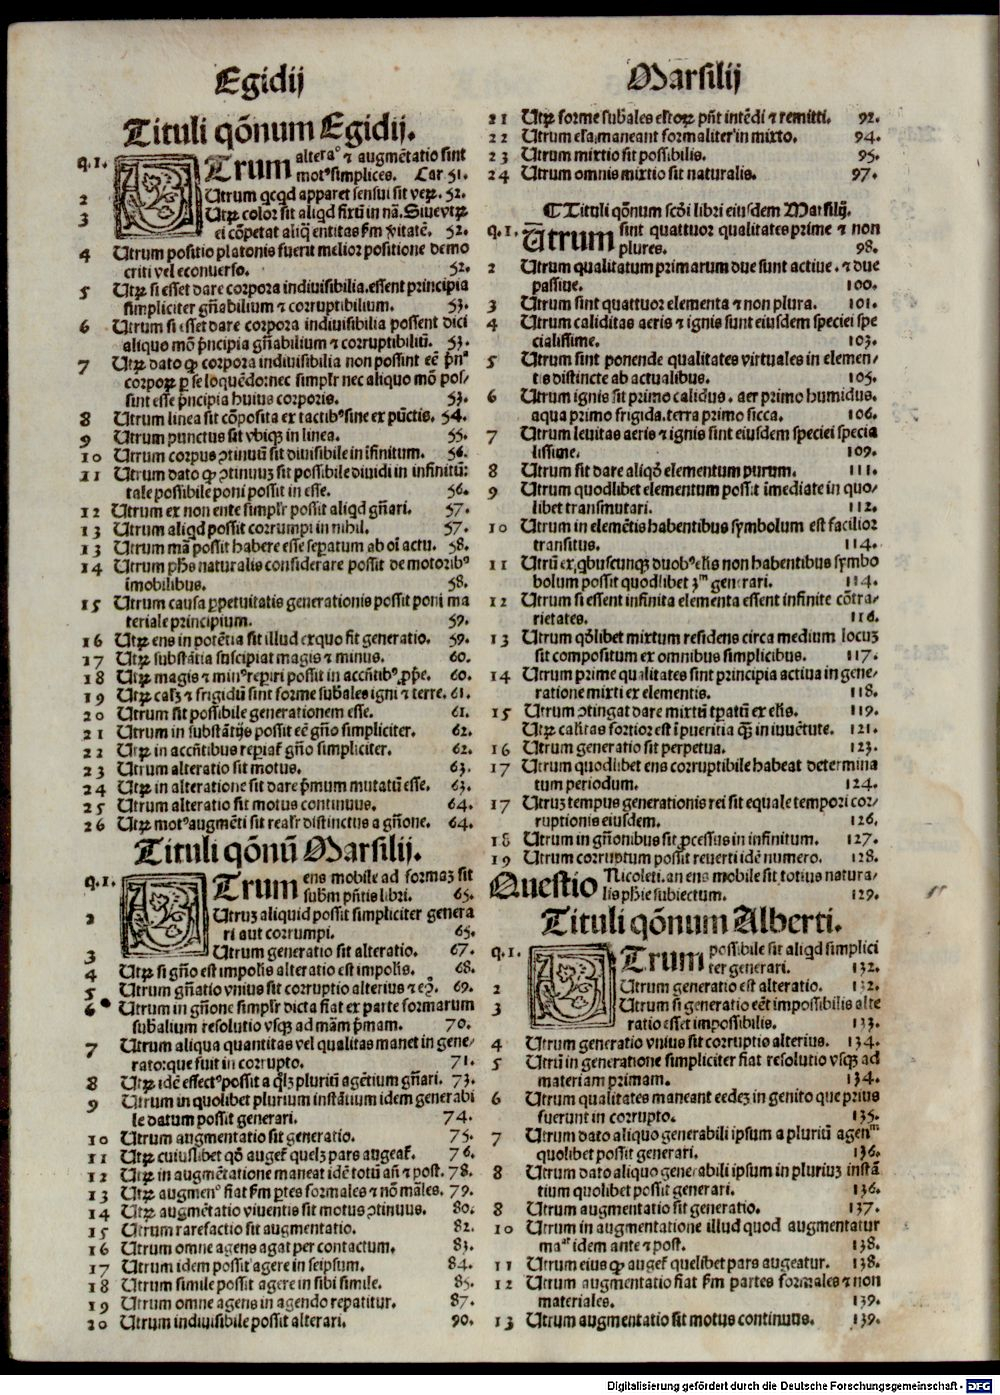 Egidij
Tituli q̄onum Egidij.
q.1. UTrum altera° ⁊ augmẽtatio sint
mot⁹ simplices. Car. 51.
2 Utrum qcqd apparet sensui sit veꝝ. 52.
3 Utꝝ color sit aliqd fixũ in nã. Siue vtꝝ
ei cõpetat aliq̃ entitas fm̃ v̾itatẽ. 52.
4 Utrum positio platonis fuerit melior positione demo
criti vel econuerso. 52.
5 Utꝝ si esset dare corpora indiuisibilia. essent principia
simpliciter gñabilium ⁊ corruptibilium. 53.
6 Utrum si esset dare corpora indiuisibilia possent dici
aliquo mõ p̃ncipia gñabilium ⁊ corruptibiliũ. 53.
7 Utꝝ dato ꝙ corpora indiuisibilia non possint eẽ p̃nᵃ
corpoꝝ ꝑ se loquẽdo: nec simplr̃ nec aliquo mõ pos/
sunt esse p̃ncipia huius corporis. 53.
8 Utrum linea sit cõposita ex tactib⁹ sine ex pũctis. 54.
9 Utrum punctus sit vbiqꝫ in linea. 55.
10 Utrum corpus ꝯtinuũ sit diuisibile in ĩfinitum. 56.
11 Utrum dato ꝙ ꝯtinuuꝫ sit possibile diuidi in infinitũ:
tale possibile poni possit in esse. 56.
12 Utrum ex non ente simplr̃ possit aliqd gñari. 57.
13 Utrum aliqd possit corrumpi in nihil. 57.
13 Utrum mã possit habere esse seꝑatum ab oĩ actu. 58.
14 Utrum phs̃ naturalis considerare possit de motorib⁹
ĩmobilibus. 58.
15 Utrum causa ꝑpetuitatis generationis possit poni ma
teriale principium. 59.
16 Utꝝ ens in potẽtia sit illud ex quo fit generatio. 59.
17 Utꝝ substãtia suscipiat magis ⁊ minus. 60.
18 Utꝝ magis ⁊ min⁹ reꝑiri possit in accñtib⁹ ꝓp̃e. 60.
19 Utꝝ calꝫ ⁊ frigidũ sint forme sub̃ales igni ⁊ terre. 61.
20 Utrum sit possibile generationem esse. 61.
21 Utrum in substãtijs possit eẽ gño simpliciter. 62.
22 Utꝝ in accñtibus reꝑiaꝉ gño simpliciter. 62.
23 Utrum alteratio sit motus. 63.
24 Utꝝ in alteratione sit dare p̃mum mutatũ esse. 63.
25 Utrum alteratio sit motus continuus. 64.
26 Utꝝ mot⁹ augmẽti sit realr̃ distinctus a gñone. 64.
Tituli q̄onũ Marsilij.
q.1. UTrum ens mobile ad formaꝫ sit
subm̃ pñtis libri. 65.
2 Utruꝫ aliquid possit simpliciter genera
ri aut corrumpi. 65.
3 Utrum generatio sit alteratio. 67.
4 Utꝝ si gño est impolis alteratio est impolis. 68.
5 Utrum gñatio vnius sit corruptio alterius ⁊ eꝯ̃. 69.
6 Utrum in gñone simplr̃ dicta fiat ex parte formarum
sub̃alium resolutio vsqꝫ ad mãm p̃mam. 70.
7 Utrum aliqua quantitas vel qualitas manet in gene/
rato: que fuit in corrupto. 71.
8 Utꝝ idẽ effect⁹ possit a qlꝫ pluriũ agẽtium gñari. 73.
9 Utrum in quolibet plurium instãtium idem generabi
le datum possit generari. 74.
10 Utrum augmentatio sit generatio. 75.
11 Utꝝ cuiuslibet qõ augeꝉ quelꝫ pars augeaꝉ. 76.
12 Utꝝ in augmẽtatione maneat idẽ totũ añ ⁊ post. 78.
13 Utꝝ augmen° fiat fm̃ ꝑtes formales ⁊ nõ mãles. 79.
14 Utꝝ augmẽtatio viuentis sit motus ꝯtinuus. 80.
15 Utrum rarefactio sit augmentatio. 82.
16 Utrum omne agens agat per contactum. 83.
17 Utrum idem possit agere in seipsum. 84.
18 Utrum simile possit agere in sibi simile. 85.
19 Utrum omne agens in agendo repatitur. 87.
20 Utrum indiuisibile possit alterari. 90.
Marsilij
21 Utꝝ forme sub̃ales eloꝝ pñt intẽdi ⁊ remitti. 92.
22 Utrum ela maneant formaliter in mixto. 94.
23 Utrum mixtio sit possibilis. 95.
24 Utrum omnis mixtio sit naturalis. 97.
¶ Tituli q̄onum scd̃i libri eiusdem Marsilij.
q.1. Utrum sint quattuor qualitates prime ⁊ non
plures. 98.
2 Utrum qualitatum primarum due sunt actiue. ⁊ due
passiue. 100.
3 Utrum sint quattuor elementa ⁊ non plura. 101.
4 Utrum caliditas aeris ⁊ ignis sunt eiusdem speciei spe
cialissime. 103.
5 Utrum sint ponende qualitates virtuales in elemen/
tis distincte ab actualibus. 105.
6 Utrum ignis sit primo calidus. aer primo humidus.
aqua primo frigida. terra primo sicca. 106.
7 Utrum leuitas aeris ⁊ ignis sint eiusdem speciei specia
lissime. 109.
8 Utrum sit dare aliqõ elementum purum. 111.
9 Utrum quodlibet elementum possit ĩmediate in quo/
libet transmutari. 112.
10 Utrum in elemẽtis habentibus symbolum est facilior
transitus. 114.
11 Utrũ ex qbuscunqꝫ duob⁹ elis non habentibus symbo
bolum possit quodlibet 3ᵐ generari. 114.
12 Utrum si essent infinita elementa essent infinite cõtra/
rietates. 116.
13 Utrum qõlibet mixtum residens circa medium locuꝫ
sit compositum ex omnibus simplicibus. 117.
14 Utrum prime qualitates sint principia actiua in gene/
ratione mixti ex elementis. 118.
15 Utrum ꝯtingat dare mixtũ tꝑatũ ex elis. 119.
Utꝝ calitas fortior est ĩ pueritia ꝗ̃ in iuuẽtute. 121.
16 Utrum generatio sit perpetua. 123.
17 Utrum quodlibet ens corruptibile habeat determina
tum periodum. 124.
17 Utruꝫ tempus generationis rei sit equale tempori cor/
ruptionis eiusdem. 126.
18 Utrum in gñonibus sit ꝓcessus in infinitum. 127.
19 Utrum corruptum possit reuerti idẽ numero. 128.
Questio Nicoleti. an ens mobile sit totius natura/
lis phie subiectum. 129.
Tituli q̄onum Alberti.
q.1. UTrum possibile sit aliqd simplici
ter generari. 132.
2 Utrum generatio est alteratio. 132.
3 Utrum si generatio eẽt impossibilis alte
ratio esset impossibilis. 133.
4 Utrum generatio vnius sit corruptio alterius. 134.
5 Utrũ in generatione simpliciter fiat resolutio vsqꝫ ad
materiam primam. 134.
6 Utrum qualitates maneant eedeꝫ in genito que prius
fuerunt in corrupto. 135.
7 Utrum dato aliquo generabili ipsum a pluriũ agenᵐ
quolibet possit generari. 136.
8 Utrum dato aliquo generabili ipsum in pluriuꝫ instã
tium quolibet possit generari. 136.
8 Utrum augmentatio sit generatio. 137.
10 Utrum in augmentatione illud quod augmentatur
maᵃᵗ idem ante ⁊ post. 138.
11 Utrum eius ꝙ augeꝉ quelibet pars augeatur. 138.
12 Utrum augmentatio fiat fm̃ partes formales ⁊ non
materiales. 139.
13 Utrum augmentatio sit motus continuus. 139.
Digitalisierung gefördert durch die Deutsche Forschungsgemeinschaft - DFG